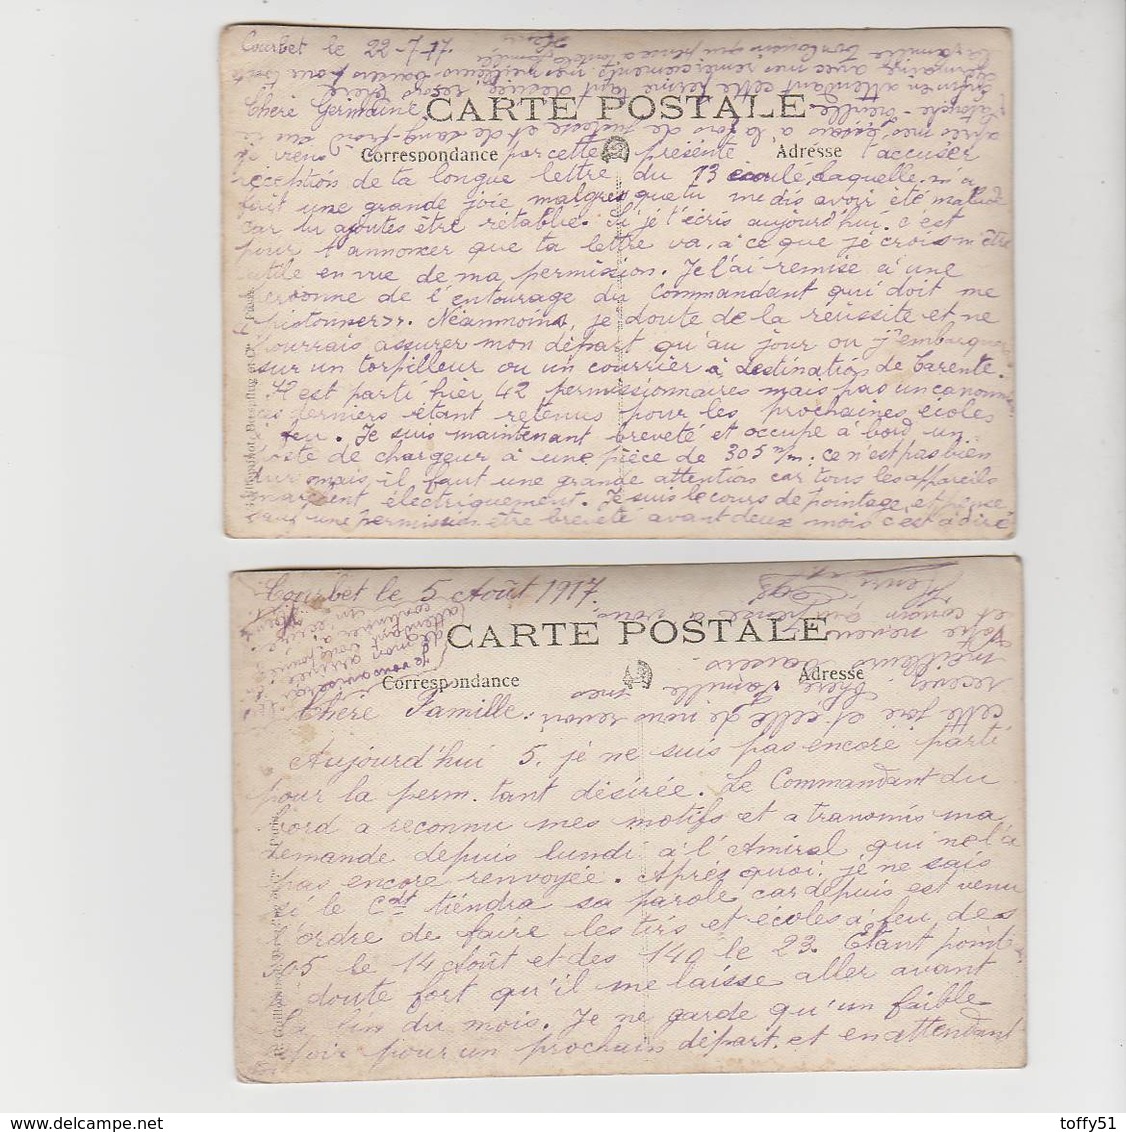 Courbet le 22-7-17.
CARTE POSTALE
Chère Germaine
Correspondance
Adresse
je viens par cette présente t'accuser
réception de ta longue lettre du 13 écoulé, laquelle m'a
fait une grande joie malgrès que tu me dis avoir été malade
car tu ajoutes être rétablie. Si je t'écris aujourd'hui. c'est
pour t'annoncer que ta lettre va, à ce que je crois m'être
utile en vue de ma permission. Je l'ai remise à une
personne de l'entourage du Commandant qui doit me
"pistonner". Néanmoins, je doute de la réussite et ne
pourrais assurer mon départ qu'au jour ou j'embarquerai
sur un torpilleur ou un courrier à destination de Tarente.
Il est parti hier 42 permissionnaires mais pas un canonnier
ces derniers étant retenus pour les prochaines écoles
à feu. Je suis maintenant breveté et occupe à bord un
poste de chargeur à une pièce de 305 m/m; ce n'est pas bien
dur mais, il faut une grande attention car tous les appareils
marchent électriquement. Je suis le cours de pointage, et pense
sauf une permission être breveté avant deux mois c'est à dire
après mes, à la fois de et de sang-froid
Enfin en attendant cette permission tant désirée, reçois chère
avec mes remerciements mes meilleurs baisers pour toute
la famille. Ton cousin qui pense à toute la famille
Henri
Courbet le 5 Août 1917
CARTE POSTALE
Correspondance
Adresse
Chère Famille:
Aujourd'hui 5. je ne suis pas encore parti
pour la perm. tant désirée. Le Commandant du
bord a reconnu mes motifs et a transmis ma
demande depuis lundi à l'Amiral qui ne l'a
pas encore renvoyée. Après quoi, je ne sais
si le Cdt tiendra sa parole car depuis est venu
l'ordre de faire les tirs et écoles à feu, des
305 le 14 Août et des 140 le 23. Etant pointr
je doute fort qu'il me laisse aller avant
la fin du mois. Je ne garde qu'un faible
espoir pour un prochain départ. et en attendant
cette joie et celle de vous revoir
recevez Chère Famille mes
meilleurs baisers.
Votre neveu
et cousin qui pense à vous
Henri
toffy51